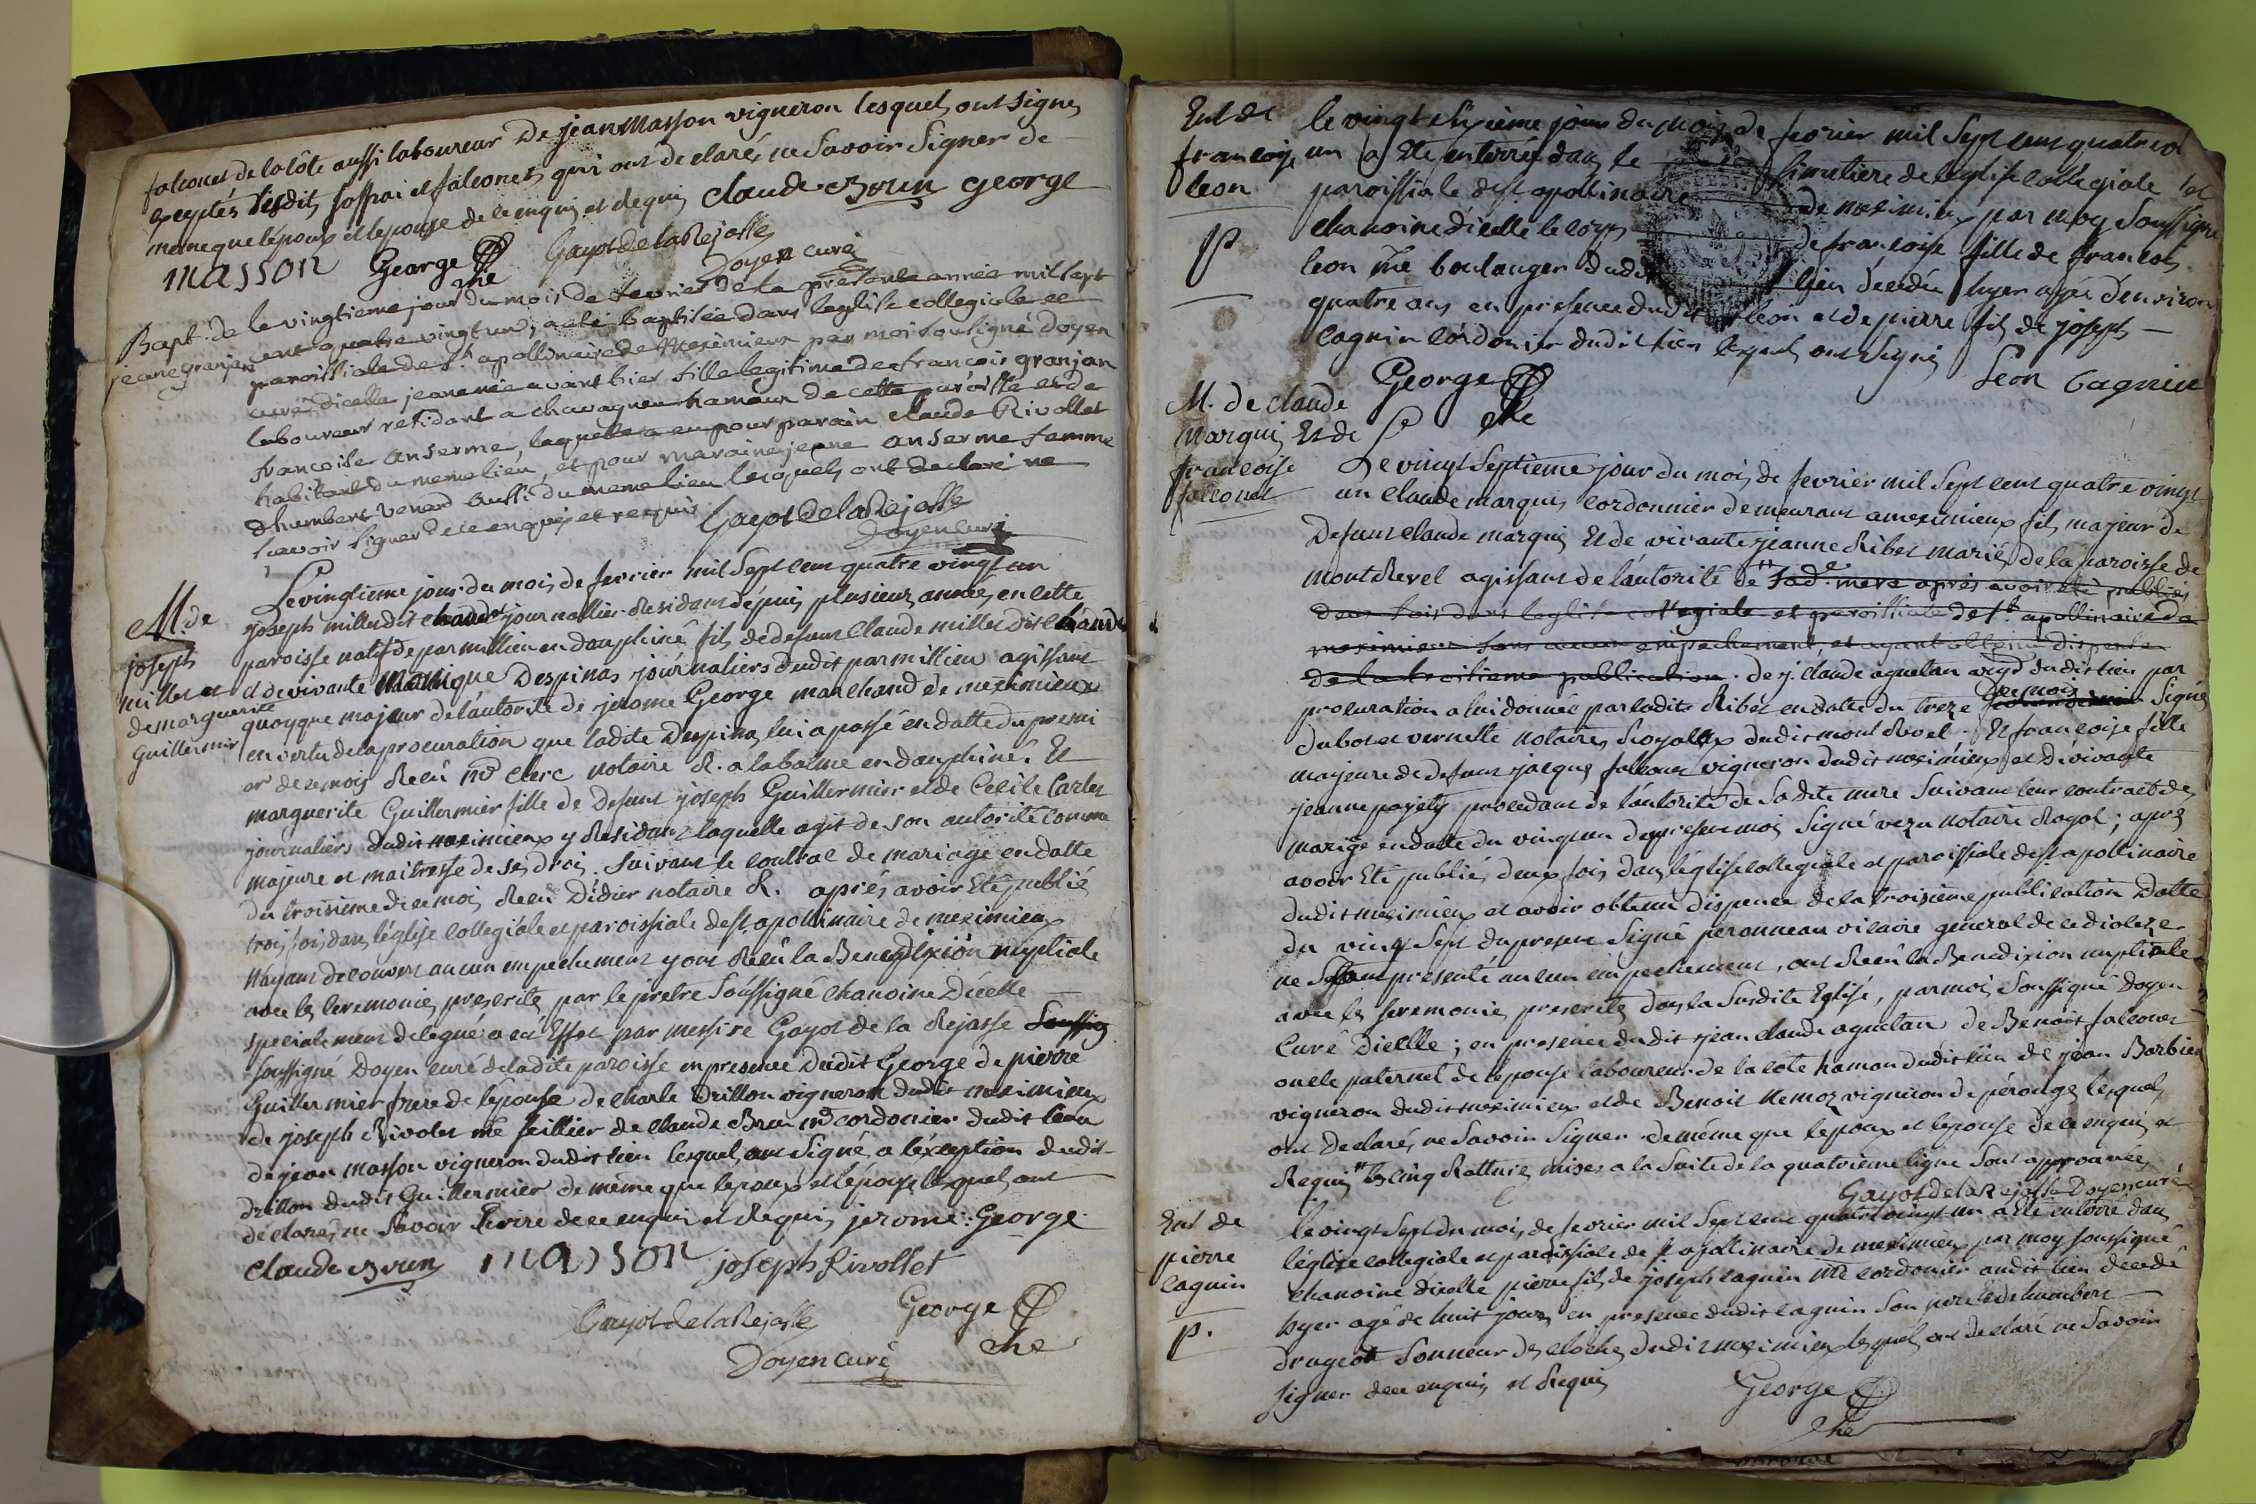 falconet de la côte aussi laboureur de jean Masson vigneron lesquels ont signé
exceptés lesdits joffrai et falconet qui ont declaré ne savoir signer de
meme que lepoux et lepouse de ce enquis et requis claude Brun George
masson George che Gayot de la Rejasse
doyen curé
Bapt. de
jeane granjan
le vingtieme jour du mois de fevrier de la presente année mil sept
cent quatre vingt un, a eté baptisée dans leglise collegiale et
paroissiale de st. apollinaire de Meximieux par moi sousigné doyen
curé dicelle jeane née avant hier fille legitime de francois granjan
laboureur residant a chavagneu hameau de cette paroisse et de
francoise anserme, laquelle a eu pour parain claude Rivollet
habitant du meme lieu, et pour maraine jeane anserme femme
dhumbert venard aussi du meme lieu lesquels ont declaré ne
savoir signer de ce enquis et requis. Gayot de la Rejasse
doyen curé
M. de
joseph
millet et
de marguerite
Guillermier
Le vingtieme jour du mois de fevrier mil sept cent quatre vingt un
joseph millet dit journallier Residant depuis plusieurs années en cette
paroisse natif de parmillieu en dauphiné fils de defunt Claude millet dit
et de vivante Monique Despinas journaliers dudit parmilieu agissant
quoyque majeur de l'autorité de jerome George marchand de meximieux
en vertu de la procuration que ladite Despinas lui a passé en datte du premi
er de ce mois Reçu me Clerc notaire R. a labalme en dauphiné. Et
marguerite Guillermier fille de Defunt joseph Guillermier et de Cecile Carlet
journaliers dudit meximieux y Residant laquelle agit de son autorité comme
majeure et maitresse de ses droi. suivant le contrat de mariage en datte
du troisieme de ce mois Reçu Didier notaire R. aprés avoir Eté publié
trois fois dans léglise collegiale et paroissiale de st apollinaire de meximieux
N'ayant decouvert aucun empechement y ont Reçu la Benediction nuptiale
avec les ceremonies prescrites par le pretre soussigné chanoine D'icelle
specialement delegué a cet Effet par messire Gayot de la Rejasse soussig
soussigné Doyen curé de ladite paroisse en presence Dudit George de pierre
Guillermier frere de l'épouse de charle Drillon vigneron dudit meximieux
de joseph Rivolet me sellier de claude Brun md cordonier dudit lieu
de jean masson vigneron dudit lieu lesquel ont signé, a l'exception dudit
Drillon dudit Guillermier de même que lepoux et l'épouse lesquel ont
déclaré ne savoir Ecrire de ce enquis et Requis jerome George
claude Brun masson joseph Rivollet
Gayot de la Rejasse George
doyen curé che
Ent de
francoise
leon
p
le vingt sixieme jour du mois de fevrier mil sept cent quatre vi
un a Ete enterrée dans le simetiere de l'eglise collegiale et
paroissiale de st apollinaire de meximieux par moy soussigné
chanoine dicelle le corps de francoise fille de francois
leon me boulanger dudit lieu décédée hyer agée d'environ
quatre ans en presence dudit leon et de pierre fils de joseph
cagnin cordonier dudit lieu lequels ont signé
George che Leon Cagnin
M. de claude
marquis Et de
francoise
falconet
Le vingt septieme jour du mois de fevrier mil sept cent quatre vingt
un claude marquis cordonnier demeurant a meximieux fils majeur de
Defunt claude marquis Et de vivante jeanne Ribet mariés de la paroisse de
montRevel agissant de l'autorité de sad.e mere aprés avoir eté publiés
deux fois dans leglise collegiale et paroissiale de st. apollinaire de
meximieux sans aucun empechement, et ayant obtenu dispense
de la troisieme publication. de j. claude aguetan vigd dudit lieu par
procuration a lui donnée par ladite Ribet en datte du treze de ce mois signé
Dubost et vernette notaires Royaux dudit mont Revel. Et francoise fille
majeure de Defunt jacque falconet vigneron dudit meximieux et de vivante
jeanne payet procedant de l'autorité de sadite mere suivant leur contract de
marige en datte du vingt un du present mois signé vezu notaire Royal; aprés
avoir Eté publié deux fois dans léglise collegiale et paroissiale de st apollinaire
dudit meximieux et avoir obtenu dispence de la troisieme publication Datte
du vingt sept du present signé peronneau vicaire general de ce dioceze
ne s'etant presenté aucun empechement, ont Reçu la Benediction nuptiale
avec les seremonies prescrites dans la susdite Eglise, par moi soussigné doyen
Curé Dicelle; en presence dudit jean claude aguetan de Benoit falconet
oncle paternel de l'epouse laboureur de la cote hamau dudit lieu de jean Barbier
vigneron dudit meximieux et de Benoit Nemoz vigneron de pérouge lesquel
ont Declaré ne savoir signer de même que lepoux et lepouse de ce enquis et
Requis les cinq Ratture mises a la suite de la quatrieme ligne sont approuvées
Gayot de la Rejasse Doyen curé
Ent de
pierre
cagnin
p.
le vingt sept du mois de fevrier mil sept cent quatre vingt un a Eté enterré dans
l'église collegiale et paroissiale de st apollinaire de meximieux par moy soussigné
chanoine dicelle pierre fils de joseph cagnin me cordonier audit lieu decedé
hyer agé de huit jours en presence dudit cagnin son pere et de humbert
drugeot sonneur des cloches dudit meximieux lesquel ont declaré ne savoir
signer de ce enquis et Requis George
che